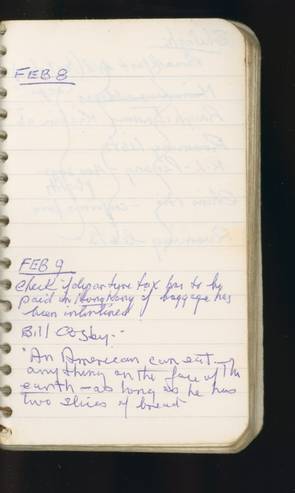 FEB 8
FEB 9
Check if departure tax has to be
paid in Hong Kong if baggage has
been interlined
Bill Cosby:-
"An American can eat
anything on the face of the
earth - as long as he has
two slices of bread